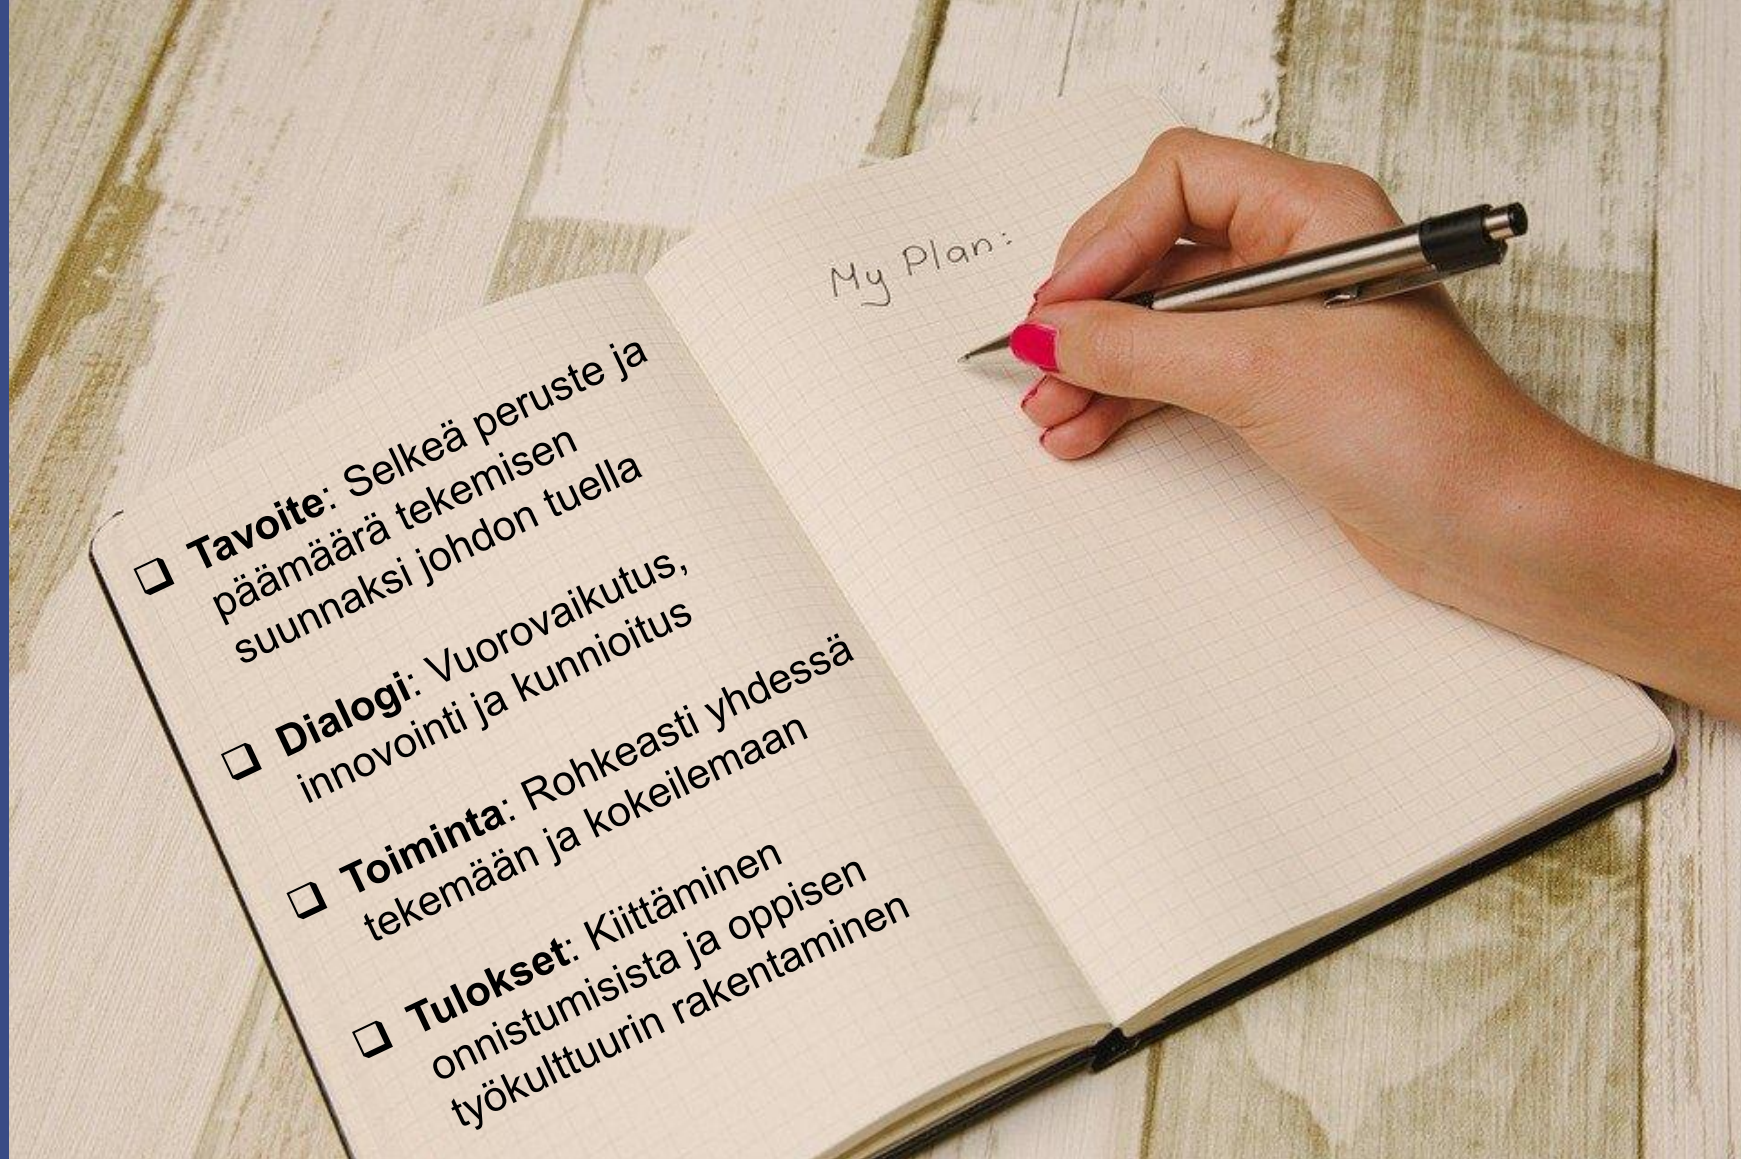 Tavoite: Selkeä peruste ja
päämäärä tekemisen
suunnaksi johdon tuella
Dialogi: Vuorovaikutus,
innovointi ja kunnioitus
Toiminta: Rohkeasti yhdessä
tekemään ja kokeilemaan
Tulokset: Kiittäminen
onnistumisista ja oppisen
työkulttuurin rakentaminen
My Plan: